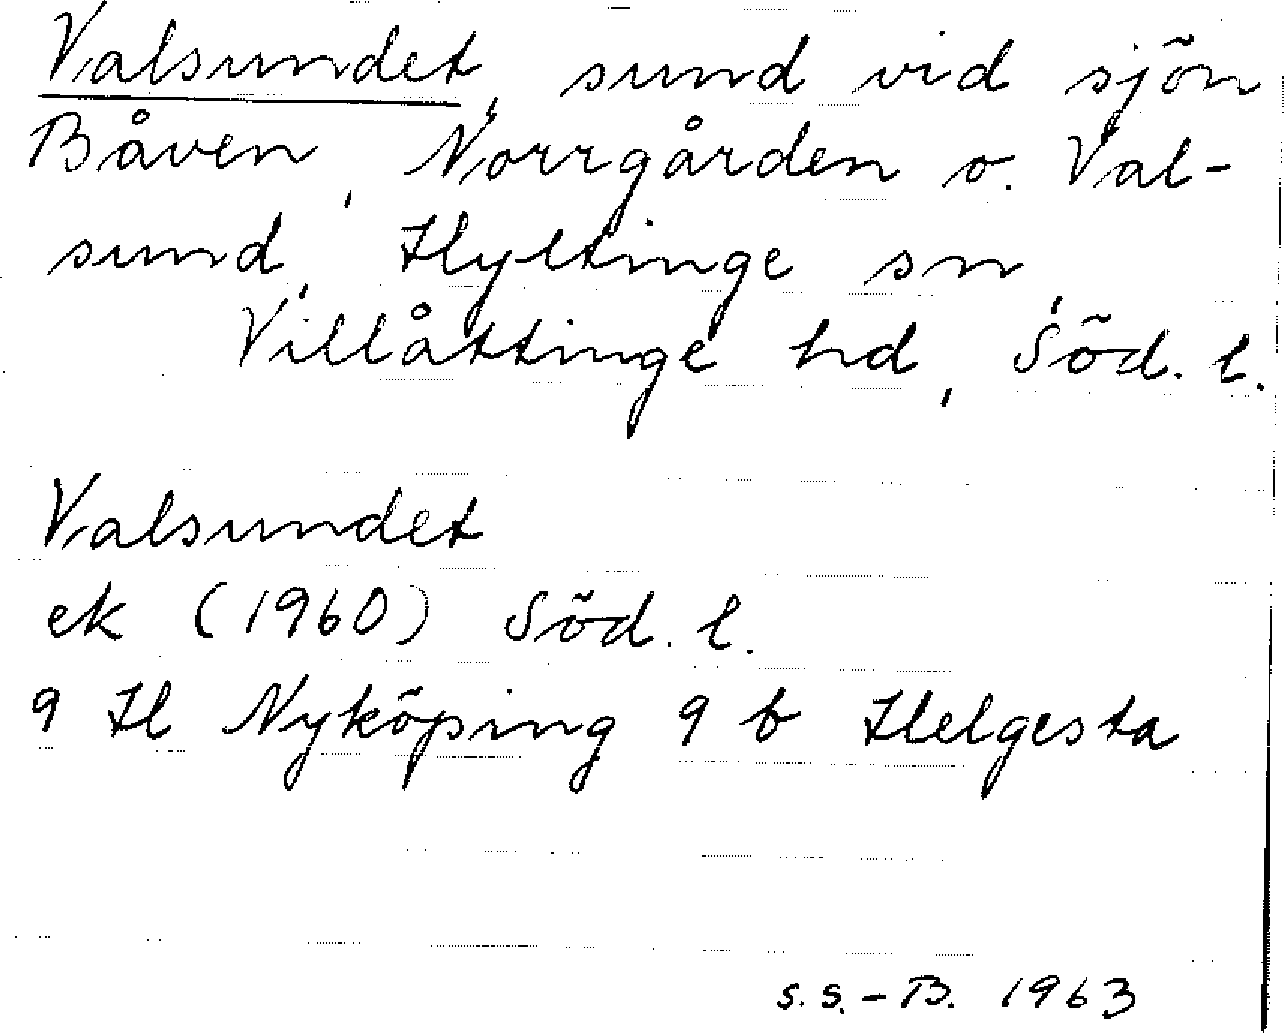 Valsundet, sund vid sjön
Båven, Norrgården o. Val-
sund, Hyltinge sn,
Villåttinge hd, Söd. l.
Valsundet
ek (1960) Söd. l.
9 H Nyköping 9 b Helgesta
s.s.-B. 1963